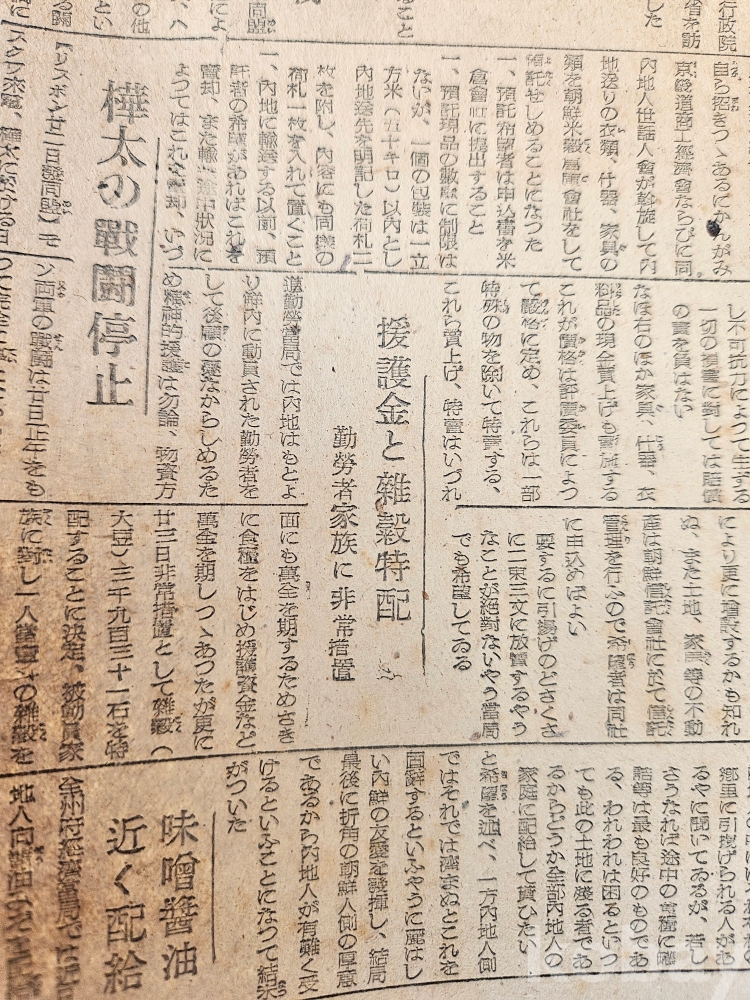 行政院
自ら招きつゝあるにかんがみ
京畿道商工經濟會ならびに同
内地人世話人會が斡旋して内
地送りの衣類、什器、家具の
類を朝鮮米穀倉庫會社をして
預託せしめることになつた
一、預託希望者は申込書を米
倉會社に提出すること
一、預託現品の數量に制限は
ないが、一個の包裝は一立
方米（五十キロ）以内とし
内地送先を明記した荷札二
枚を附し、内容にも同樣の
荷札一枚を入れて置くこと
一、内地に輸送する以前、預
託者の希望があればこれを
賣却、また輸送途中狀況に
よつてはこれを賣却、いづ
樺太の戰鬪停止
【リスボン廿二日發同盟】モ
スクワ來電、樺太に於ける日
し不可抗力によつて生ずる
一切の損害に對しては賠償
の責を負はない
なほ右のほか家具、什器、衣
料品の現金買上げも實施する
これが價格は評價委員によつ
て嚴格に定め、これらは一部
特殊の物を除いて特賣する、
これら買上げ、特賣はいづれ
援護金と雜穀特配
勤勞者家族に非常措置
道勤勞當局では内地はもとよ
り鮮内に動員された勤勞者を
して後顧の憂なからしめるた
め精神的援護は勿論、物資方
ソ両軍の戰鬪は廿日正午をも
つて完全に
により更に增設するかも知れ
ぬ、また土地、家屋等の不動
產は朝鮮信託會社に於て信託
管理を行ふので希望者は同社
に申込めばよい
要するに引揚げのどさくさ
に二束三文に放賣するやう
なことが絕對ないやう當局
でも希望してゐる
面にも萬全を期するためさき
に食糧をはじめ援護資金など
萬全を期しつゝあつたが更に
廿三日非常措置として雜穀（
大豆）三千九百三十一石を特
配することに決定、被動員家
族に對し一人當
の雜穀を
鄕里に引揚げられる人があ
るやに聞いてゐるが、若し
さうなれば途中の
詰等は最も良好のものであ
る、われわれは困るといつ
ても此の土地に殘る者であ
るからどうか全部内地人の
家庭に配給して貰ひたい
と希望を述べ、一方内地人側
ではそれでは濟まぬとこれを
固辭するといふやうに麗はし
い内鮮の友愛を發揮し、結局
最後に折角の朝鮮人側の厚意
であるから内地人が有難く受
けるといふことになつて結末
がついた
味噌醬油
近く配給
全州府經濟當局では近日
地人向醬油